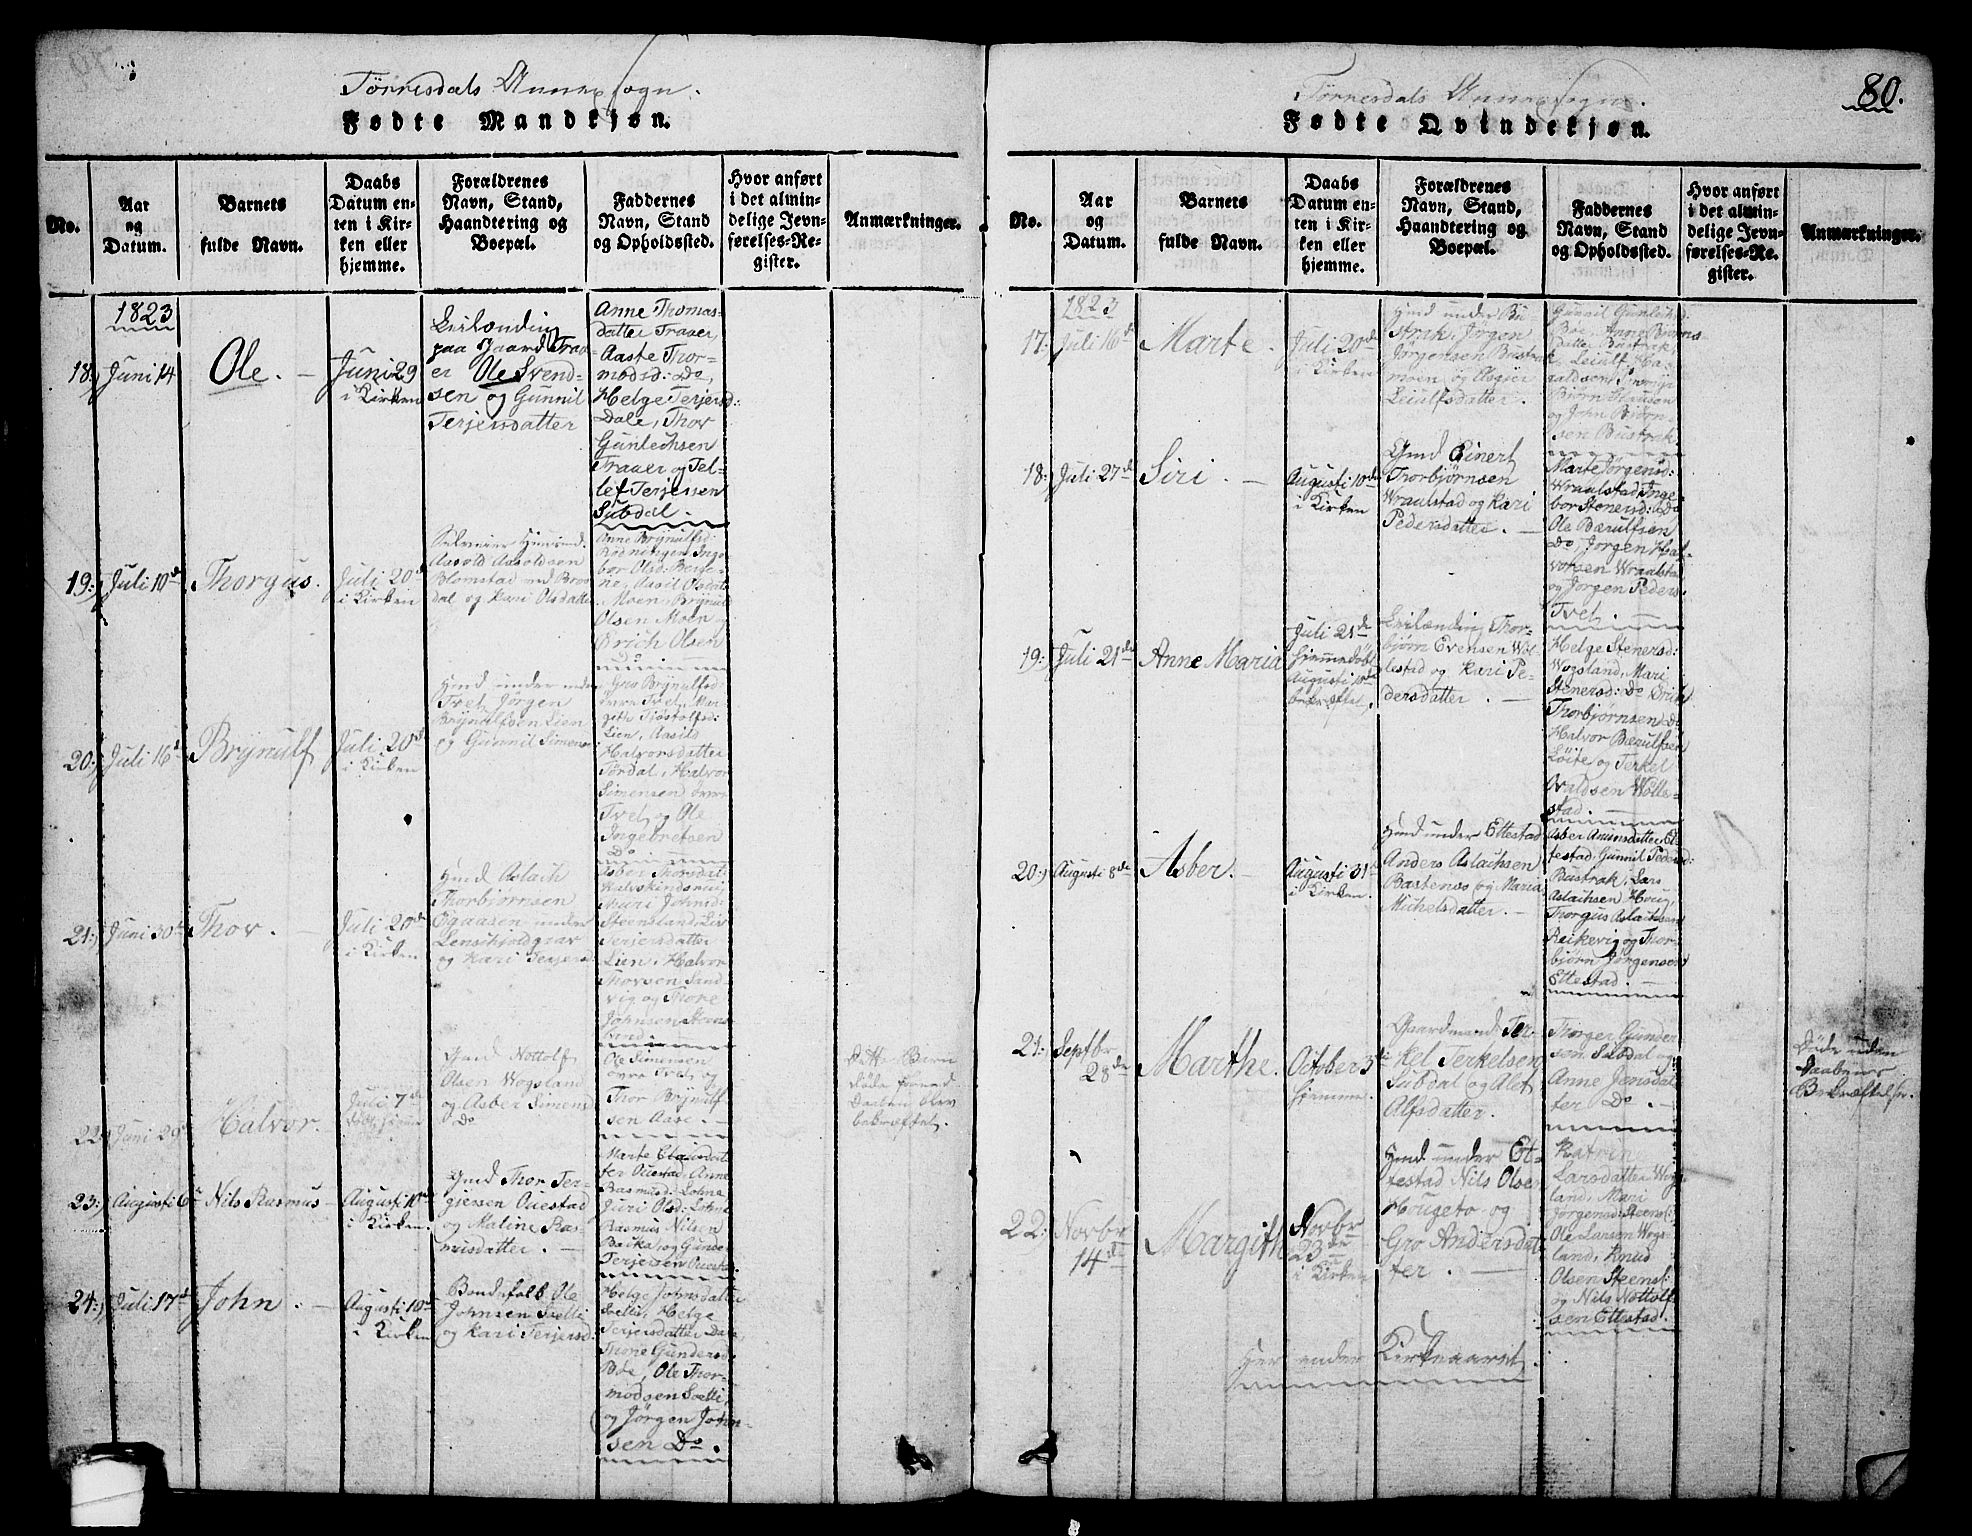 Tørrisdals Annexsogn.
Fødte Mandkjøn.
No.
Aar
og
Datum.
Barnets
fulde Navn.
Daabs
Datum en-
ten i Kir-
ken eller
hjemme.
Forældrenes
Navn, Stand,
Haandtering og
Boepæl.
Faddernes
Navn, Stand
og Opholdssted.
Hvor anført
i det almin-
delige Jevn-
førelses-Re-
gister.
Anmærkninger.
1823
18:) Juni 14
Ole. —
Juni 29
i Kirken
Leilænding
paa Gaard Traa-
er Ole Svend-
sen og Gunnil
Terjersdatter
Anne Thomas-
datter Traaer,
Aaste Thor-
modsd: Do,
Helge Terjersd:
Dale, Thor
Gunlechsen
Traaer og Tel-
lef Terjessen
Subdal.
19:) Juli 10de
Thorgus.
Juli 20de
i Kirken
Aasold Aasoldsen
Blomstad ved Broe
dal og Kari Olsdatter
Anne Brynulfsd:
Rødningen, Inge-
bor Olsd:
Aasil Olsdat
Moen, Brynul
Olsen Moen
Erich Olsen
Do
20:) Juli 16de
Brynulf
Juli 20de
i Kirken
Hmd under
Tvet, Jørgen
Brynulfsen Lien
og Gunnil Simens
Gro Brynulfsd:
øvre Tvet, Mar-
geth Tjøstolfsd:
Lien, Aasild
Halvorsdatter
Tørdal, Halvor
Simensen øvre
Tvet, og Ole
Ingebretsen
Do
21:) Juni 30te
Thor. —
Juli 20de
i Kirken
Hmd Aslach
Thorbjørnsen
Øgaasen under
Lenschjoldgrav
og Kari Terjersd:
Asber Thorsdat
Juri Johnsd:
Steensland, Liv
Terjersdatter
Lien, Halvor
Thorsen Sand-
vig og Thore
Johnsen Steens-
land.
22:) Juni 29de
Halvor.
Juli 7de
Hmd Nottolf
Olsen Wogsland
og Asber Simensd
Do
Ole Simensen
øvre Tvet, og
Thor Brynulf-
sen Aase. —
Dette Barn
døde førend
Daaben blev
bekræftet.
23:) Augusti 6te
Nils Rasmus —
Augusti 10de
i Kirken.
Hmd Thor Ter-
gjersen Ouestad
og Maline Ras-
musdatter. —
Marte Clausdat
ter Ouestad, Anne
Rasmusd: Lohne
Juri Olsd: Lohne
Rasmus Nilsen
Baika, og Gunde
Terjersen Ouesta
24:) Juli 17de
John. —
Augusti 10de
i Kirken
Bondefolk Ole
Johnsen Sælli
og Kari Terjersd:
Helge Johnsdatter
Sælli, Helge
Terjersdatter Dale,
Thone Gundersd:
Boe, Ole Thor-
modsen Sælli,
og Jørgen John-
sen Do.
80.
Tørrisdals Annexsogn.
Fødte Qvindekjøn.
No.
Aar
og
Datum.
Barnets
fulde Navn.
Daabs
Datum en-
ten i Kir-
ken eller
hjemme.
Forældrenes
Navn, Stand,
Haandtering og
Boepæl.
Faddernes
Navn, Stand
og Opholdssted.
Hvor anført
i det almin-
delige Jevn-
førelses-Re-
gister.
Anmærkninger.
1823
17:) Juli 16de
Marte.
Juli 20de
i Kirken
Hmd under Bu
strak, Jørgen
Jørgensen Bustrak
moen og Asløjer
Leiulfsdatter.
Gunnil Gunleiksd
Boe, Anne Biørns
datter Bustrak,
Leiulf Ha-
raldsen
Biørn
og John Bjørn-
sen Bustrak
18:) Juli 27de
Siri. —
Augusti 10de
i Kirken
Hmd Einert
Thorbjørnsen
Wraalstad og Kari
Pedersdatter. —
Marte Jørgensd:
Wraalstad, Inge-
bor Stenersd: Do
Ole Bærulfsen
Do, Jørgen Hal-
vorsen Wraalstad
og Jørgen Peders.
Tvet. —
19:) Juli 21de
Anne Maria
Juli 21de
hjemmedøbt
Augusti 10de
bekræftet.
Leilænding Thor-
bjørn Evensen Wøl-
lestad og Kari Pe-
dersdatter. —
Helge Stenersd:
Wogsland, Mari
Stenersd: Do Erich
Thorbjørnsen Do
Halvor Bærulfsen
Løite og Terkel
Evaldsen Wølle-
stad. —
20:) Augusti 8de
Asber. —
Augusti 31te
i Kirken.
Hmd under Ettestad
Anders Aslachsen
Bastenes og Maria
Michelsdatter. —
Asber Amunsdatter Et-
testad, Gunnil Pedersd:
Bustrak, Lars
Aslachsen Houg,
Thorgus Aslachsen
Reikevig og Thor-
bjørn Jørgensen
Ettestad. —
21:) Septbr
28de
Marthe.
October 3de
hjemme.
Gaardmand Ter-
kel Terkelsen
Subdal og Alet
Alfsdatter.
Thorger Gunder-
sen Subdal og
Anne Jensdat-
ter Do. —
Døde uden
Daabens
Bekræftelse.
22:) Novbr
14de
Margith
Novbr
23de
i Kirken
Hmd under Et-
testad Nils Olsen
Hougeto og
Gro Andersdat-
ter. —
Katrine
Larsdatter Wogs-
land, Mari
Jørgensd: Steensl:
Ole Larsen Wogs-
land, Knud
Olsen Steensl:
og Nils Nottolf-
sen Ettestad.
Her ender Kirkeaaret.